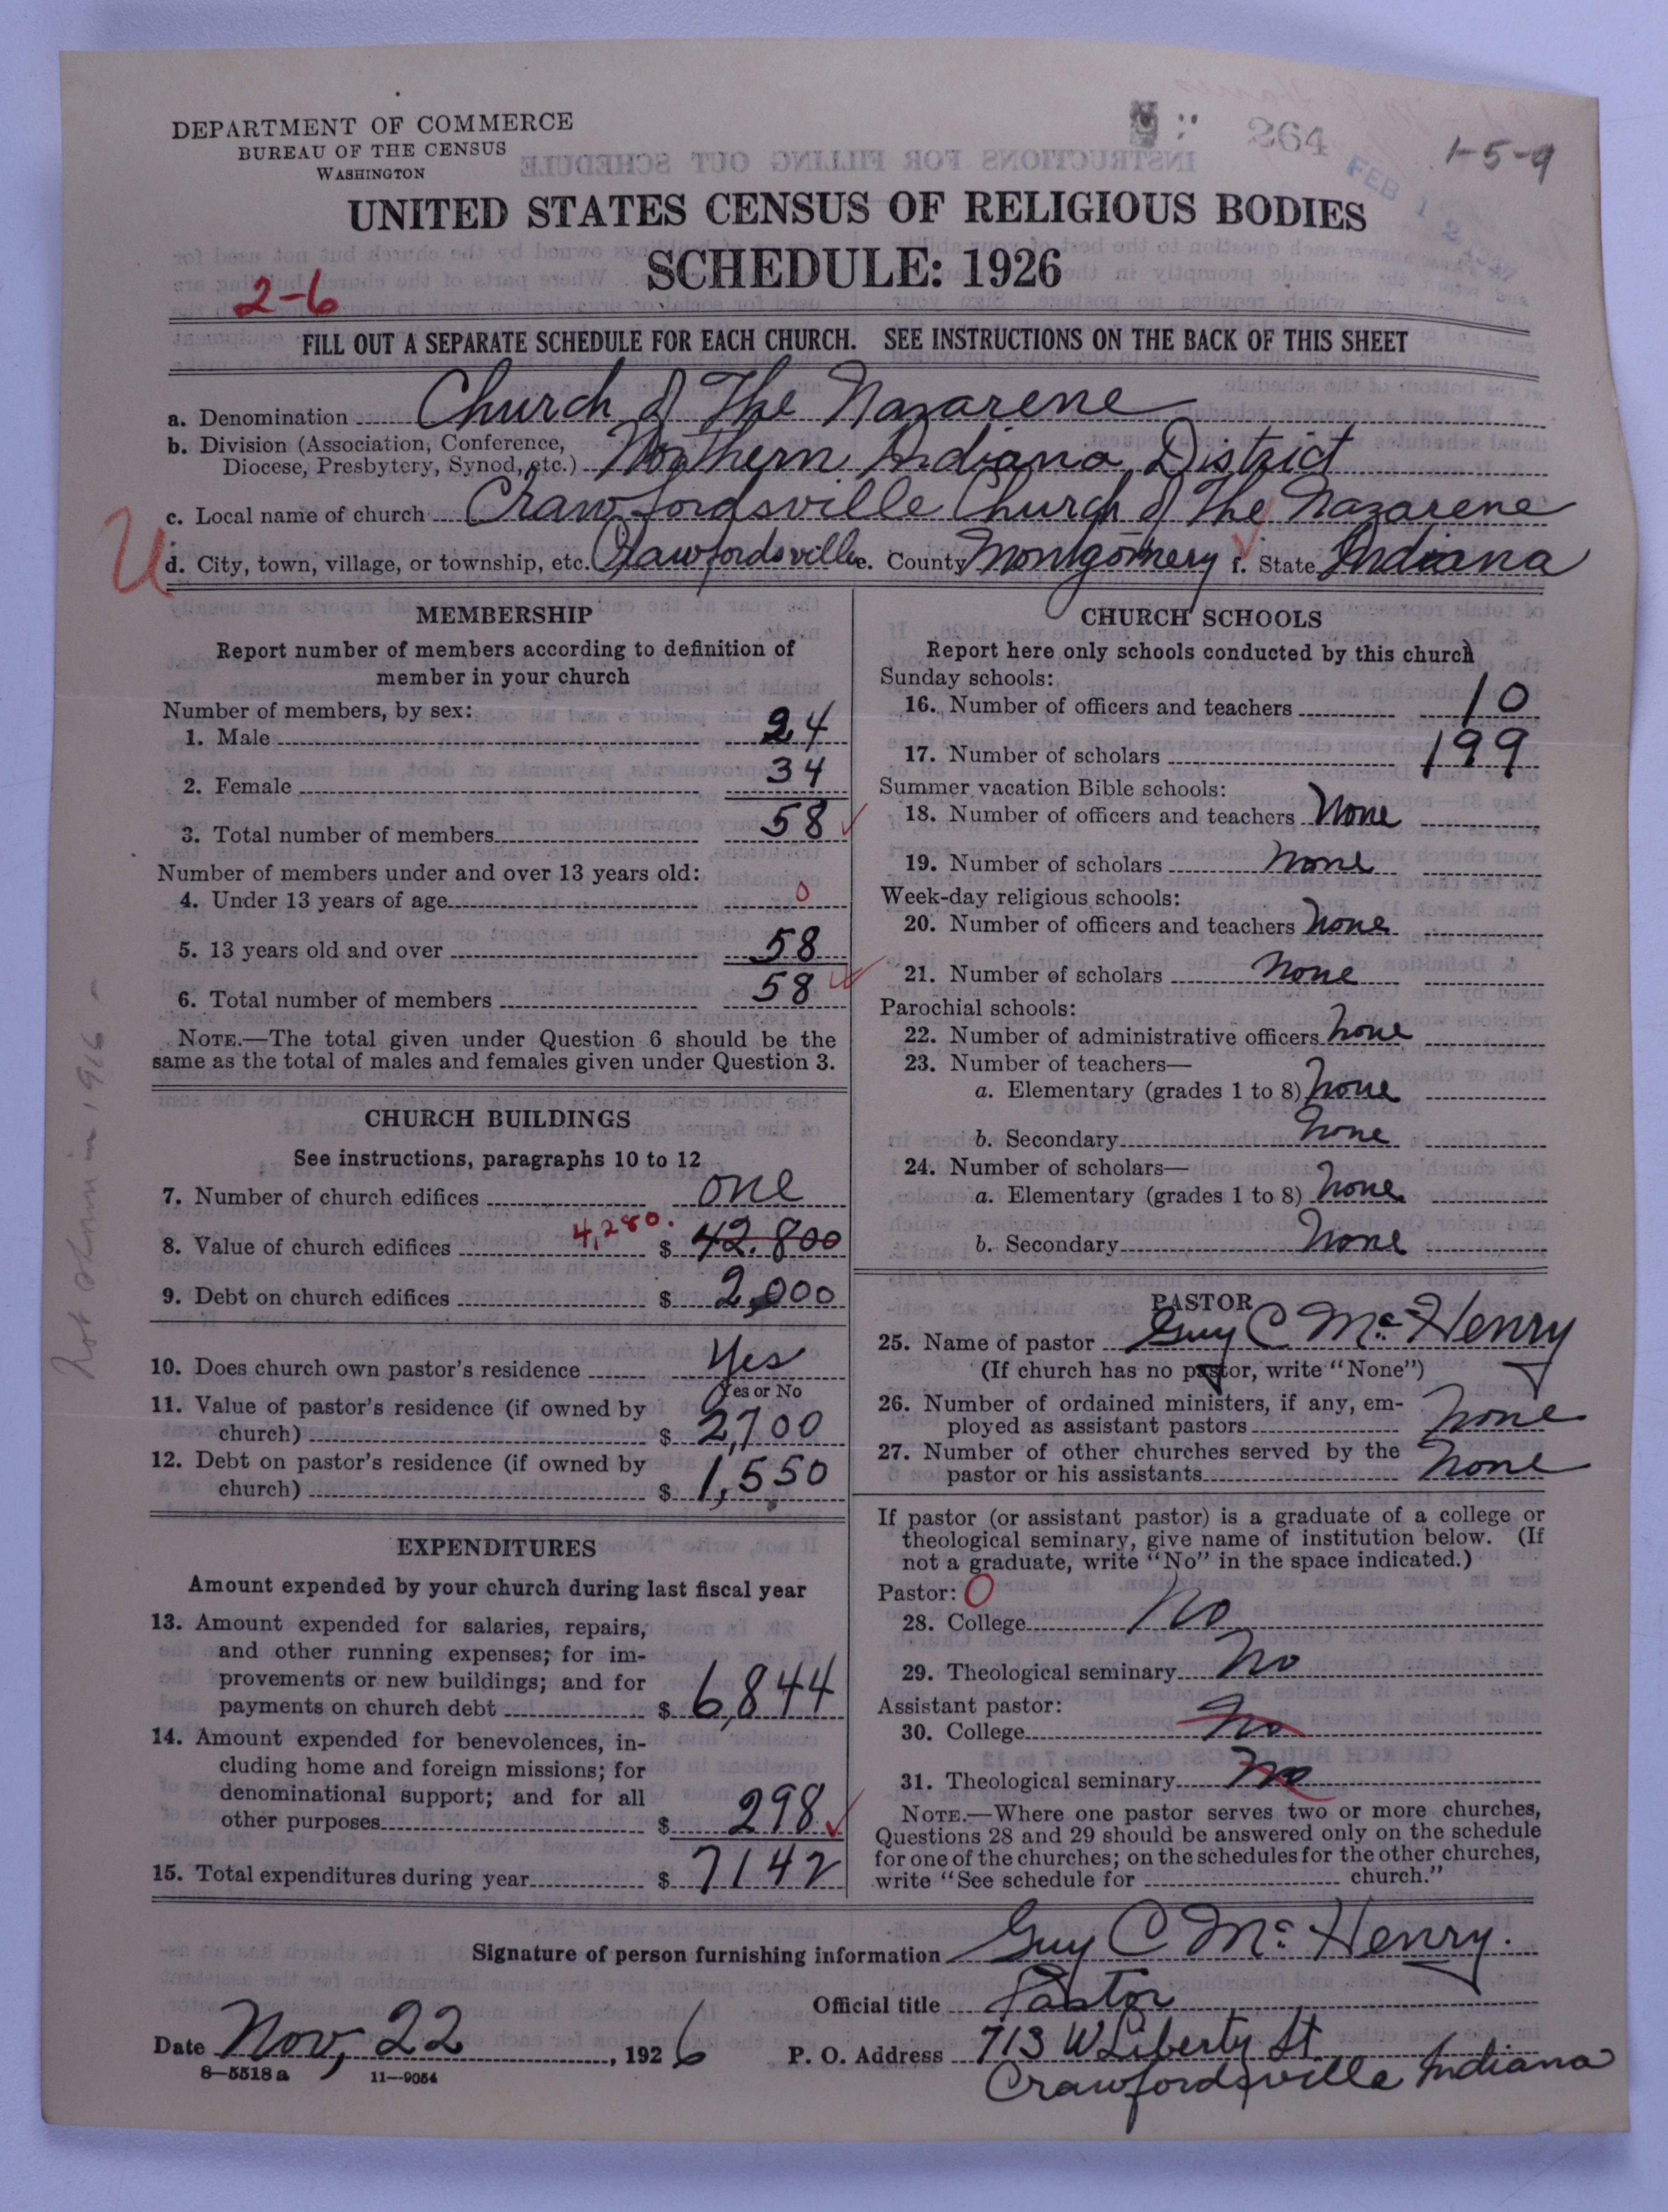 DEPARTMENT OF COMMERCE
BUREAU OF THE CENSUS
WASHINGTON
264
1-5-9
FEB 12
UNITED STATES CENSUS OF RELIGIOUS BODIES
SCHEDULE: 1926
2-6
FILL OUT A SEPARATE SCHEDULE FOR EACH CHURCH. SEE INSTRUCTIONS ON THE BACK OF THIS SHEET
a. Denomination Church of The Nazarene
b. Division (Association, Conference, Diocese, Presbytery, Synod, etc.) Northern Indiana District
c. Local name of church Crawfordsville Church of The Nazarene
U
d. City, town, village, or township, etc. Crawfordsville e. County Montgomery f. State Indiana
MEMBERSHIP
Report number of members according to definition of
member in your church
Number of members, by sex:
1. Male 24
2. Female 34
3. Total number of members 58
Number of members under and over 13 years old:
4. Under 13 years of age 0
5. 13 years old and over 58
6. Total number of members 58
NOTE.—The total given under Question 6 should be the
same as the total of males and females given under Question 3.
Not shown in 1916 -
CHURCH BUILDINGS
See instructions, paragraphs 10 to 12
7. Number of church edifices one
8. Value of church edifices 4,280. $ 42.800
9. Debt on church edifices $ 2,000
10. Does church own pastor's residence Yes
Yes or No
11. Value of pastor's residence (if owned by
church) $ 2,700
12. Debt on pastor's residence (if owned by
church) $ 1,550
EXPENDITURES
Amount expended by your church during last fiscal year
13. Amount expended for salaries, repairs,
and other running expenses; for im-
provements or new buildings; and for
payments on church debt $ 6,844
14. Amount expended for benevolences, in-
cluding home and foreign missions; for
denominational support; and for all
other purposes $ 298
15. Total expenditures during year $ 7142
CHURCH SCHOOLS
Report here only schools conducted by this church
Sunday schools:
16. Number of officers and teachers 10
17. Number of scholars 199
Summer vacation Bible schools:
18. Number of officers and teachers None
19. Number of scholars none
Week-day religious schools:
20. Number of officers and teachers None
21. Number of scholars none
Parochial schools:
22. Number of administrative officers none
23. Number of teachers—
a. Elementary (grades 1 to 8) none
b. Secondary none
24. Number of scholars—
a. Elementary (grades 1 to 8) none
b. Secondary None
PASTOR
25. Name of pastor Guy C McHenry
(If church has no pastor, write "None")
26. Number of ordained ministers, if any, em-
ployed as assistant pastors none
27. Number of other churches served by the
pastor or his assistants none
If pastor (or assistant pastor) is a graduate of a college or
theological seminary, give name of institution below. (If
not a graduate, write "No" in the space indicated.)
Pastor: 0
28. College No
29. Theological seminary No
Assistant pastor:
30. College No
31. Theological seminary No
NOTE.—Where one pastor serves two or more churches,
Questions 28 and 29 should be answered only on the schedule
for one of the churches; on the schedules for the other churches,
write "See schedule for church."
Signature of person furnishing information Guy C McHenry.
Official title Pastor
Date Nov, 22, 1926
P. O. Address 713 W Liberty St
Crawfordsville Indiana
8—5518 a 11—9054